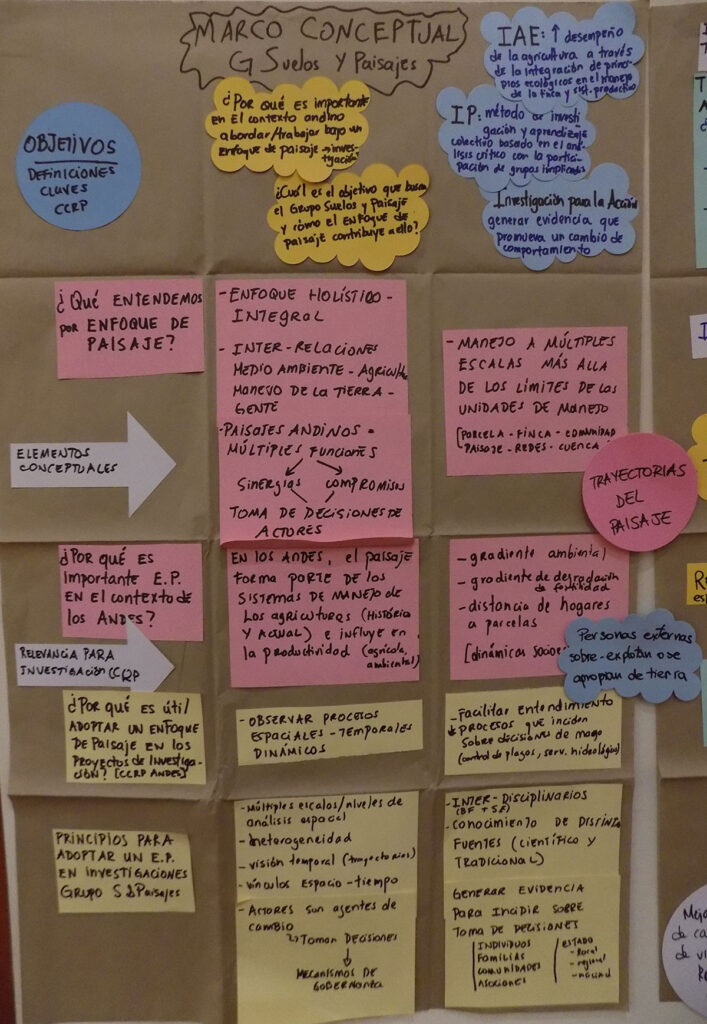 MARCO CONCEPTUAL
G SUELOS Y PAISAJES
OBJETIVOS
DEFINICIONES
CLAVES
CCRP
¿Por qué es importante
en el contexto andino
abordar/trabajar bajo un
enfoque de paisaje → inves-
tigación?
¿Cuál es el objetivo que busca
el Grupo Suelos y Paisaje
y cómo el ENFOQUE de
paisaje contribuye a ello?
IAE: ↑ desempeño
de la agricultura a través
de la integración de princi-
pios ecológicos en el manejo
de la finca y sist. productivo
IP: método de investi
gación y aprendizaje
colectivo basado en el aná-
lisis crítico con la partici-
pación de grupos implicados
Investigación para la Acción
generar evidencia que
promueva un cambio de
comportamiento
¿Qué ENTENDEMOS
por ENFOQUE DE
PAISAJE?
- ENFOQUE HOLÍSTICO -
INTEGRAL
- INTER-RELACIONES
MEDIO AMBIENTE - Agricultu
MANEJO DE LA TIERRA -
GENTE
- PAISAJES ANDINOS =
MÚLTIPLES FUNCIONES
Sinergias
COMPROMISOS
TOMA DE DECISIONES DE
ACTORES
- MANEJO A MÚLTIPLES
ESCALAS MÁS ALLA
DE LOS LÍMITES DE LAS
UNIDADES DE MANEJO
[PARCELA - FINCA - COMUNIDAD
PAISAJE - REDES - CUENCA
ELEMENTOS
CONCEPTUALES
TRAYECTORIAS
DEL
PAISAJE
¿Por qué es
importante E.P.
EN EL CONTEXTO de
los ANDES?
EN LOS ANDES, el paisaje
forma PARTE DE LOS
SISTEMAS DE MANEJO DE
LOS agricultores (HISTÓRICO
Y ACTUAL) e influye en
la productividad (agrícola,
ambiental)
- gradiente ambiental
- gradiente de degradación
de fertilidad
- distancia de hogares
a parcelas
[dinámicas
Personas externas
sobre-explotan o se
apropian de tierra
RELEVANCIA PARA
INVESTIGACIÓN CCRP
¿Por qué es útil/
ADOPTAR UN ENFOQUE
DE Paisaje EN LOS
PROYECTOS DE INVESTIGA-
CIÓN? [CCRP ANDES]
- OBSERVAR PROCESOS
ESPACIALES - TEMPORALES
DINÁMICOS
- Facilitar entendimiento
PROCESOS que inciden
Sobre decisiones de
(control de plagas, serv. hidrológico)
PRINCIPIOS PARA
ADOPTAR UN E.P.
EN INVESTIGACIONES
GRUPO S & Paisajes
- Múltiples escalas/niveles de
análisis espacial
- heterogeneidad
- visión temporal (trayectorias)
- vínculos espacio - tiempo
- Actores son agentes de
cambio
↳ Toman DECISIONES
MECANISMOS DE
GOBERNANZA
- INTER-DISCIPLINARIOS
- CONOCIMIENTO DE DISTINTA
FUENTES (científico y
TRADICIONAL)
GENERAR EVIDENCIA
PARA INCIDIR SOBRE
TOMA DE DECISIONES
INDIVIDUOS
FAMILIAS
COMUNIDADES
ESTADO
- local
- regional